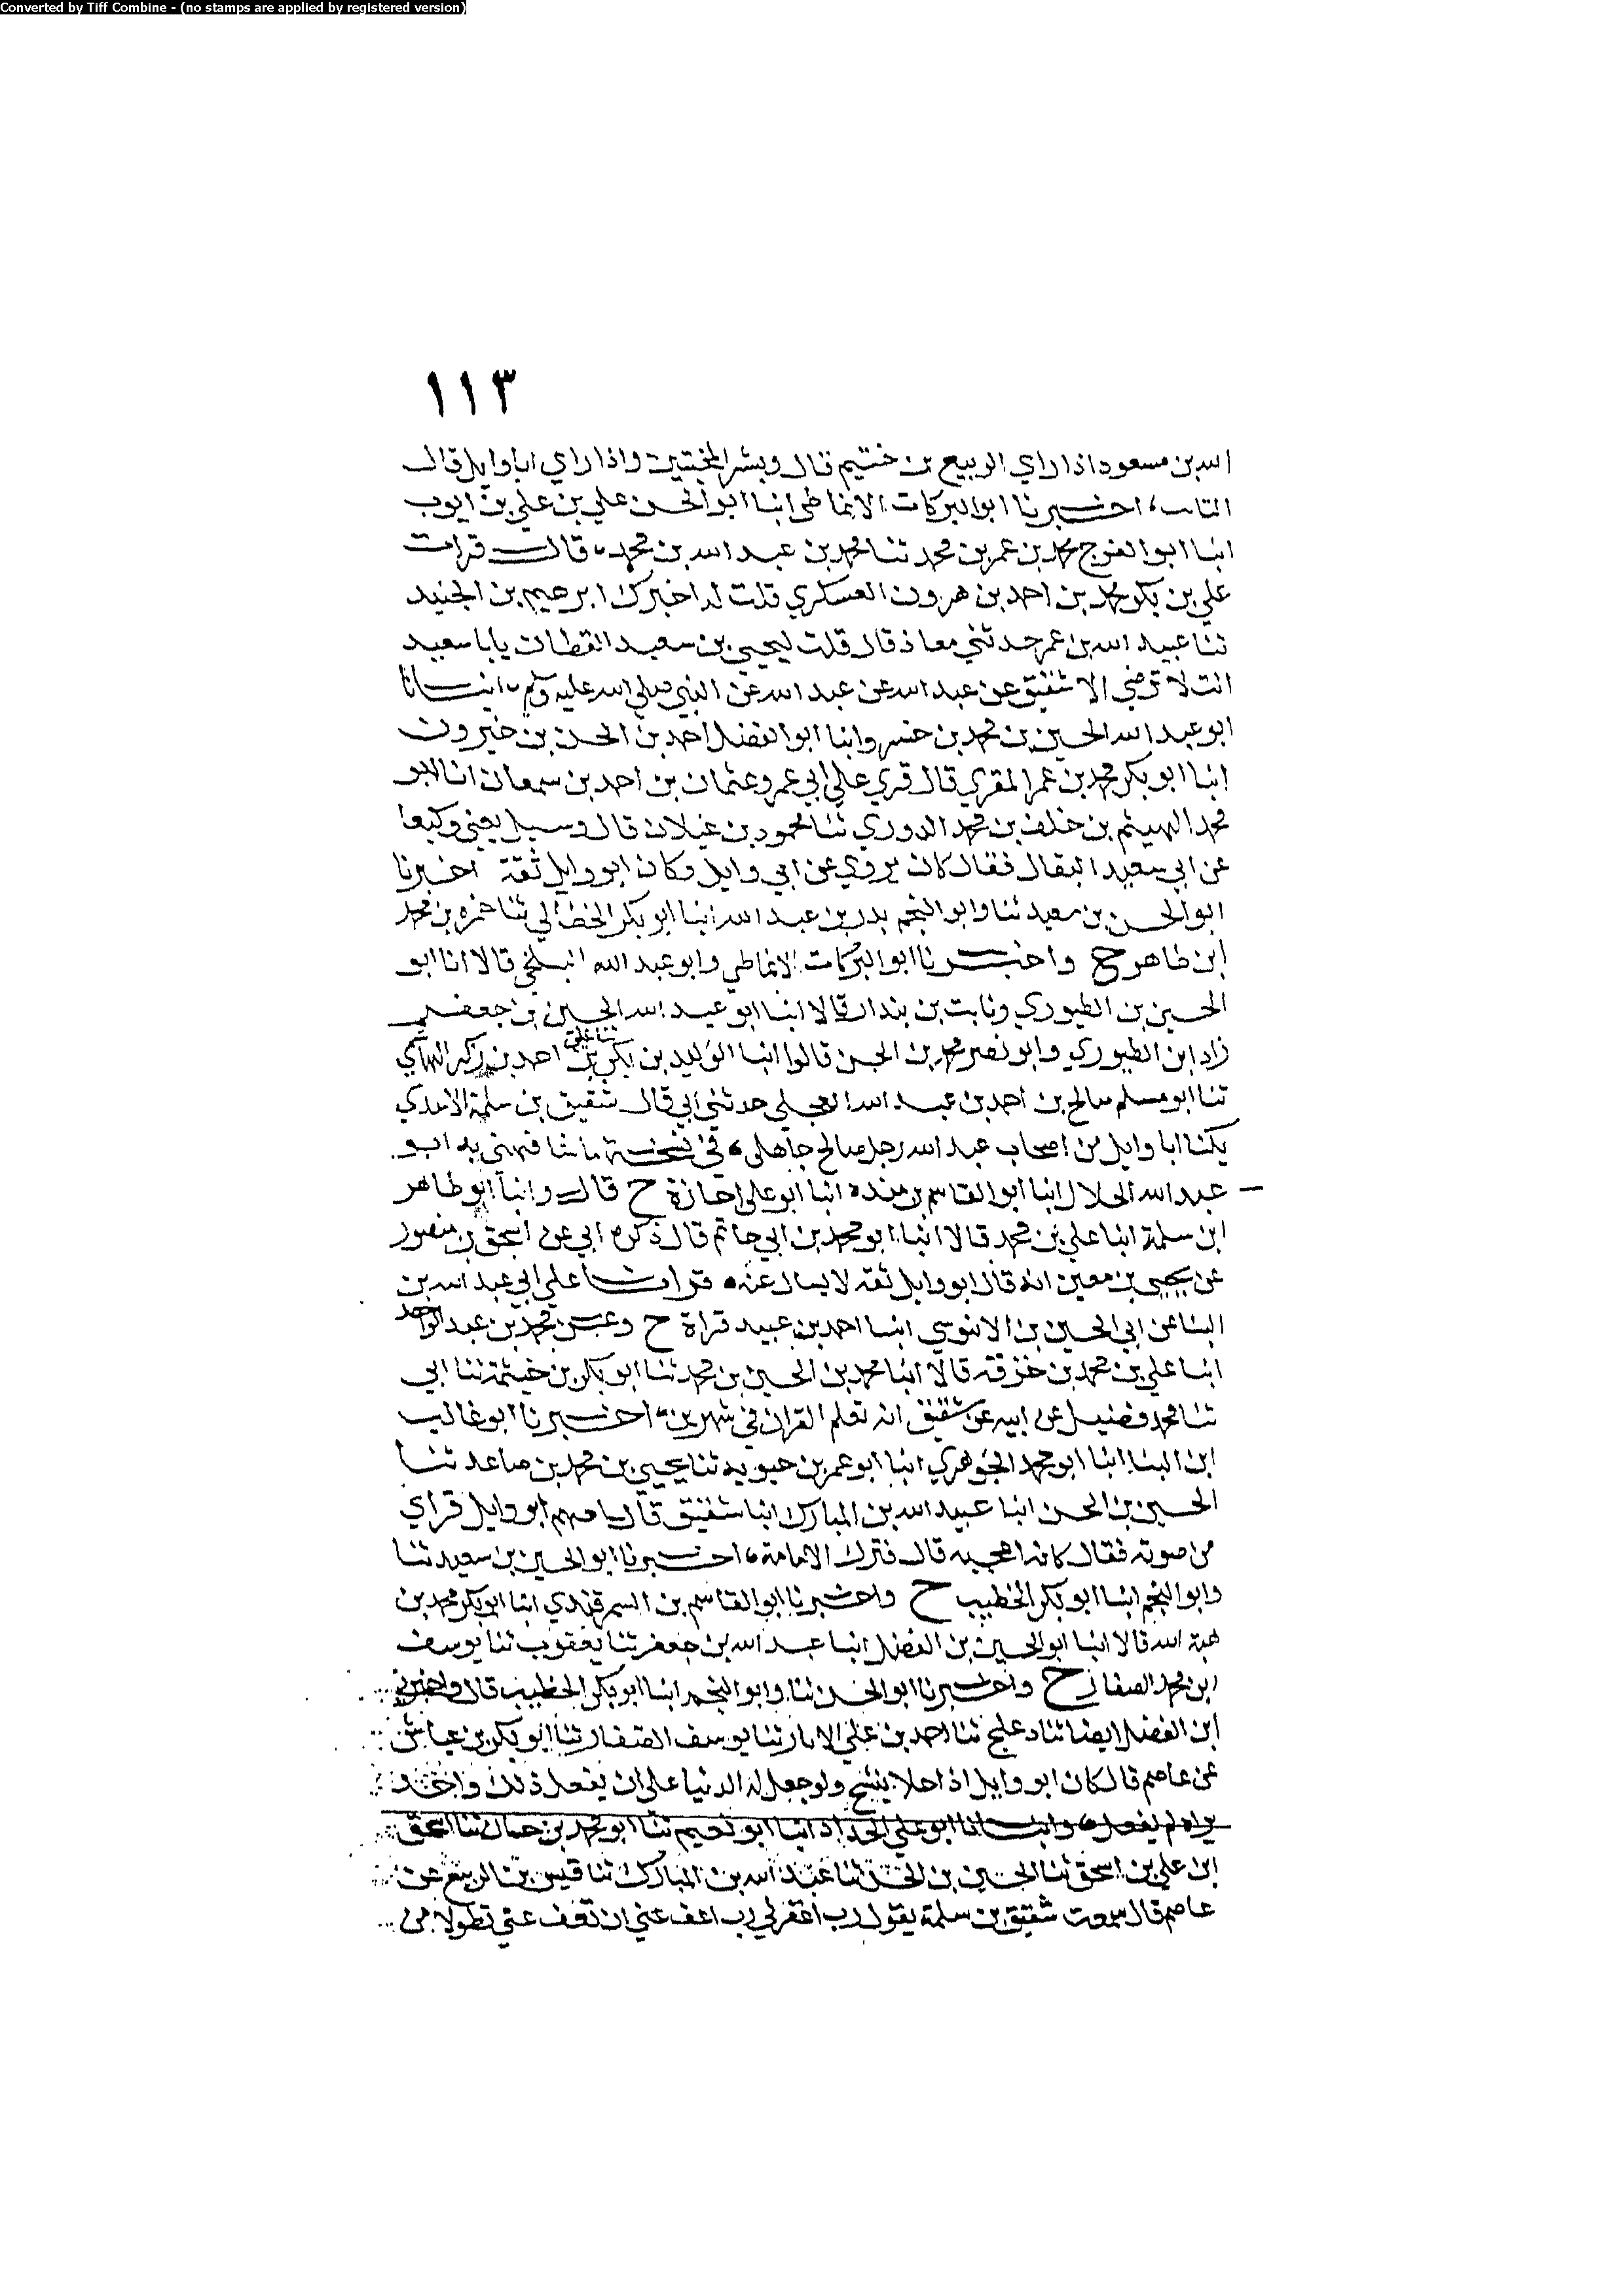 Converted by Tiff Combine - (no stamps are applied by registered version)
١١٣
الله بن مسعود اذا راي الربيع بن خثيم قال وبشر المخبتين واذا راي ابا وايل قال
التاب، اخبرنا ابو البركات الانماطي انبا ابو الحسن علي بن علي بن ايوب
انبا ابو الفرج محمد بن عمر بن محمد ثنا محمد بن عبد الله بن محمد، قال قرات
علي بن بكر محمد بن احمد بن هرون العسكري قلت له اخبرك ابرهيم بن الجنيد
ثنا عبيد الله بن عمر حدثني معاذ قال قلت ليحيى بن سعيد القطان يابا سعيد
انت لا ترضى الا شقيق عن عبد الله عن عبد الله عن النبي صلى الله عليه وسلم، انبانا
ابو عبد الله الحسين بن محمد بن خسرو انبا ابو الفضل احمد بن الحسن بن خيرون
انبا ابو بكر محمد بن عمر المقري قال قري علي ابي عمرو عثمان بن احمد بن سمعان انا ابو
محمد الهيثم بن خلف بن محمد الدوري ثنا محمود بن غيلان قال وسيل يعني وكيعا
عن ابي سعيد البقال فقال كان يروي عن ابي وايل وكان ابو وايل ثقة اخبرنا
ابو الحسن بن سعيد ثنا وابو النجم بدر بن عبد الله انبا ابو بكر الخطيب ثنا حمزه بن محمد
ابن طاهر ح واخبرنا ابو البركات الانماطي وابو عبد الله البلخي قالا انا ابو
الحسين بن الطيوري وثابت بن بندار قالا انبا ابو عبد الله الحسين بن جعفر
زاد ابن الطيوري وابو نصر محمد بن الحسن قالوا انبا الوليد بن بكر ثنا علي بن احمد بن زكريا الهاشمي
ثنا ابو مسلم صالح بن احمد بن عبد الله العجلي حدثني ابي قال شقيق بن سلمة الاسدي
يكنا ابا وايل من اصحاب عبد الله رجل صالح جاهلي، في نسخة ما شافهني به ابو
عبد الله الخلال انبا ابو القاسم بن منده انبا ابو علي اجازة ح قال وانبا ابو طاهر
ابن سلمة انبا علي بن محمد قالا انبا ابو محمد بن ابي حاتم قال ذكره ابي عن اسحق بن منصور
عن يحيى بن معين انه قال ابو وايل ثقه لا يسال عنه، قرات علي ابي عبد الله بن
البنا عن ابي الحسين بن الابنوسي انبا احمد بن عبيد قراة ح وعن محمد بن عبد الواحد
انبا علي بن محمد بن خزفه قالا انبا محمد بن الحسين بن محمد ثنا ابو بكر بن خيثمة ثنا ابي
ثنا محمد فضيل عن ابيه عن شقيق انه تعلم القران في شهرين، اخبرنا ابو غالب
ابن البنا انبا ابو محمد الجوهري انبا ابو عمر بن حيويه ثنا يحيى بن محمد بن صاعد ثنا
الحسين بن الحسن انبا عبيد الله بن المبارك انبا شقيق قال امهم ابو وايل فراي
من صوته فقال كانه اعجبه قال فترك الامامة، اخبرنا ابو الحسين بن سعيد ثنا
وابو النجم انبا ابو بكر الخطيب ح واخبرنا ابو القاسم بن السمرقندي انبا ابو بكر محمد بن
هبة الله قالا انبا ابو الحسين بن الفضل انبا عبد الله بن جعفر ثنا يعقوب ثنا يوسف
ابن محمد الصفار ح واخبرنا ابو الحسن ثنا وابو النجم انبا ابو بكر الخطيب قال واخبرني
ابن الفضل ايضا ثنا دعلج ثنا احمد بن علي الابار ثنا يوسف الصفار ثنا ابو بكر بن عياش
عن عاصم قال كان ابو وايل اذا خلا ينشج ولو جعل له الدنيا على ان يفعل ذلك واحد
يراه لم يفعل، وانبانا ابو علي الحداد انبا ابو نعيم ثنا ابو محمد بن حيان ثنا اسحق
ابن علي بن اسحق ثنا الحسين بن الحسن ثنا عبد الله بن المبارك ثنا قيس بن الربيع عن
عاصم قال سمعت شقيق بن سلمة يقول رب اغفر لي رب اعف عني ان تعف عني تطولا من